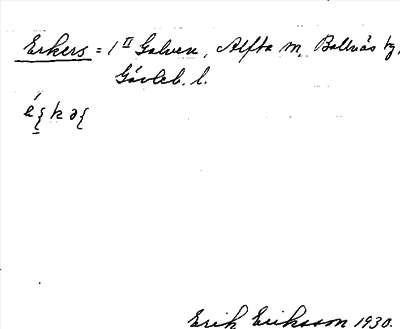 Erkers = 1 II Galven, Alfta sn, Bollnäs tg,
Gävleb. l.
Erik Eriksson 1930.